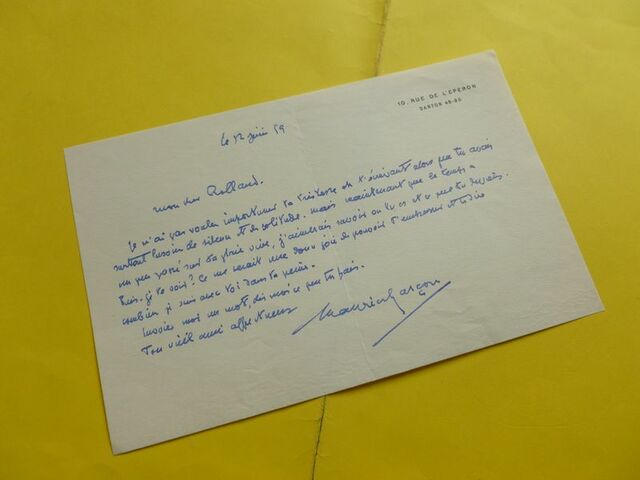 10, RUE DE L'EPERON
DANTON 48-80
le 12 juin 59
mon cher Rolland.
Je n'ai pas voulu importuner ta tristesse en t'écrivant alors que tu avais
surtout besoin de silence et de solitude. mais maintenant que le temps a
un peu passé sur ta plaie vive, j'aimerais savoir où tu es et ce que tu
Puis-je te voir? Ce me serait une douce joie de pouvoir t'embrasser et te dire
combien je suis avec toi dans ta peine.
Envoies moi un mot, dis moi ce que tu fais.
Ton vieil ami affectueux
Maurice Garçon